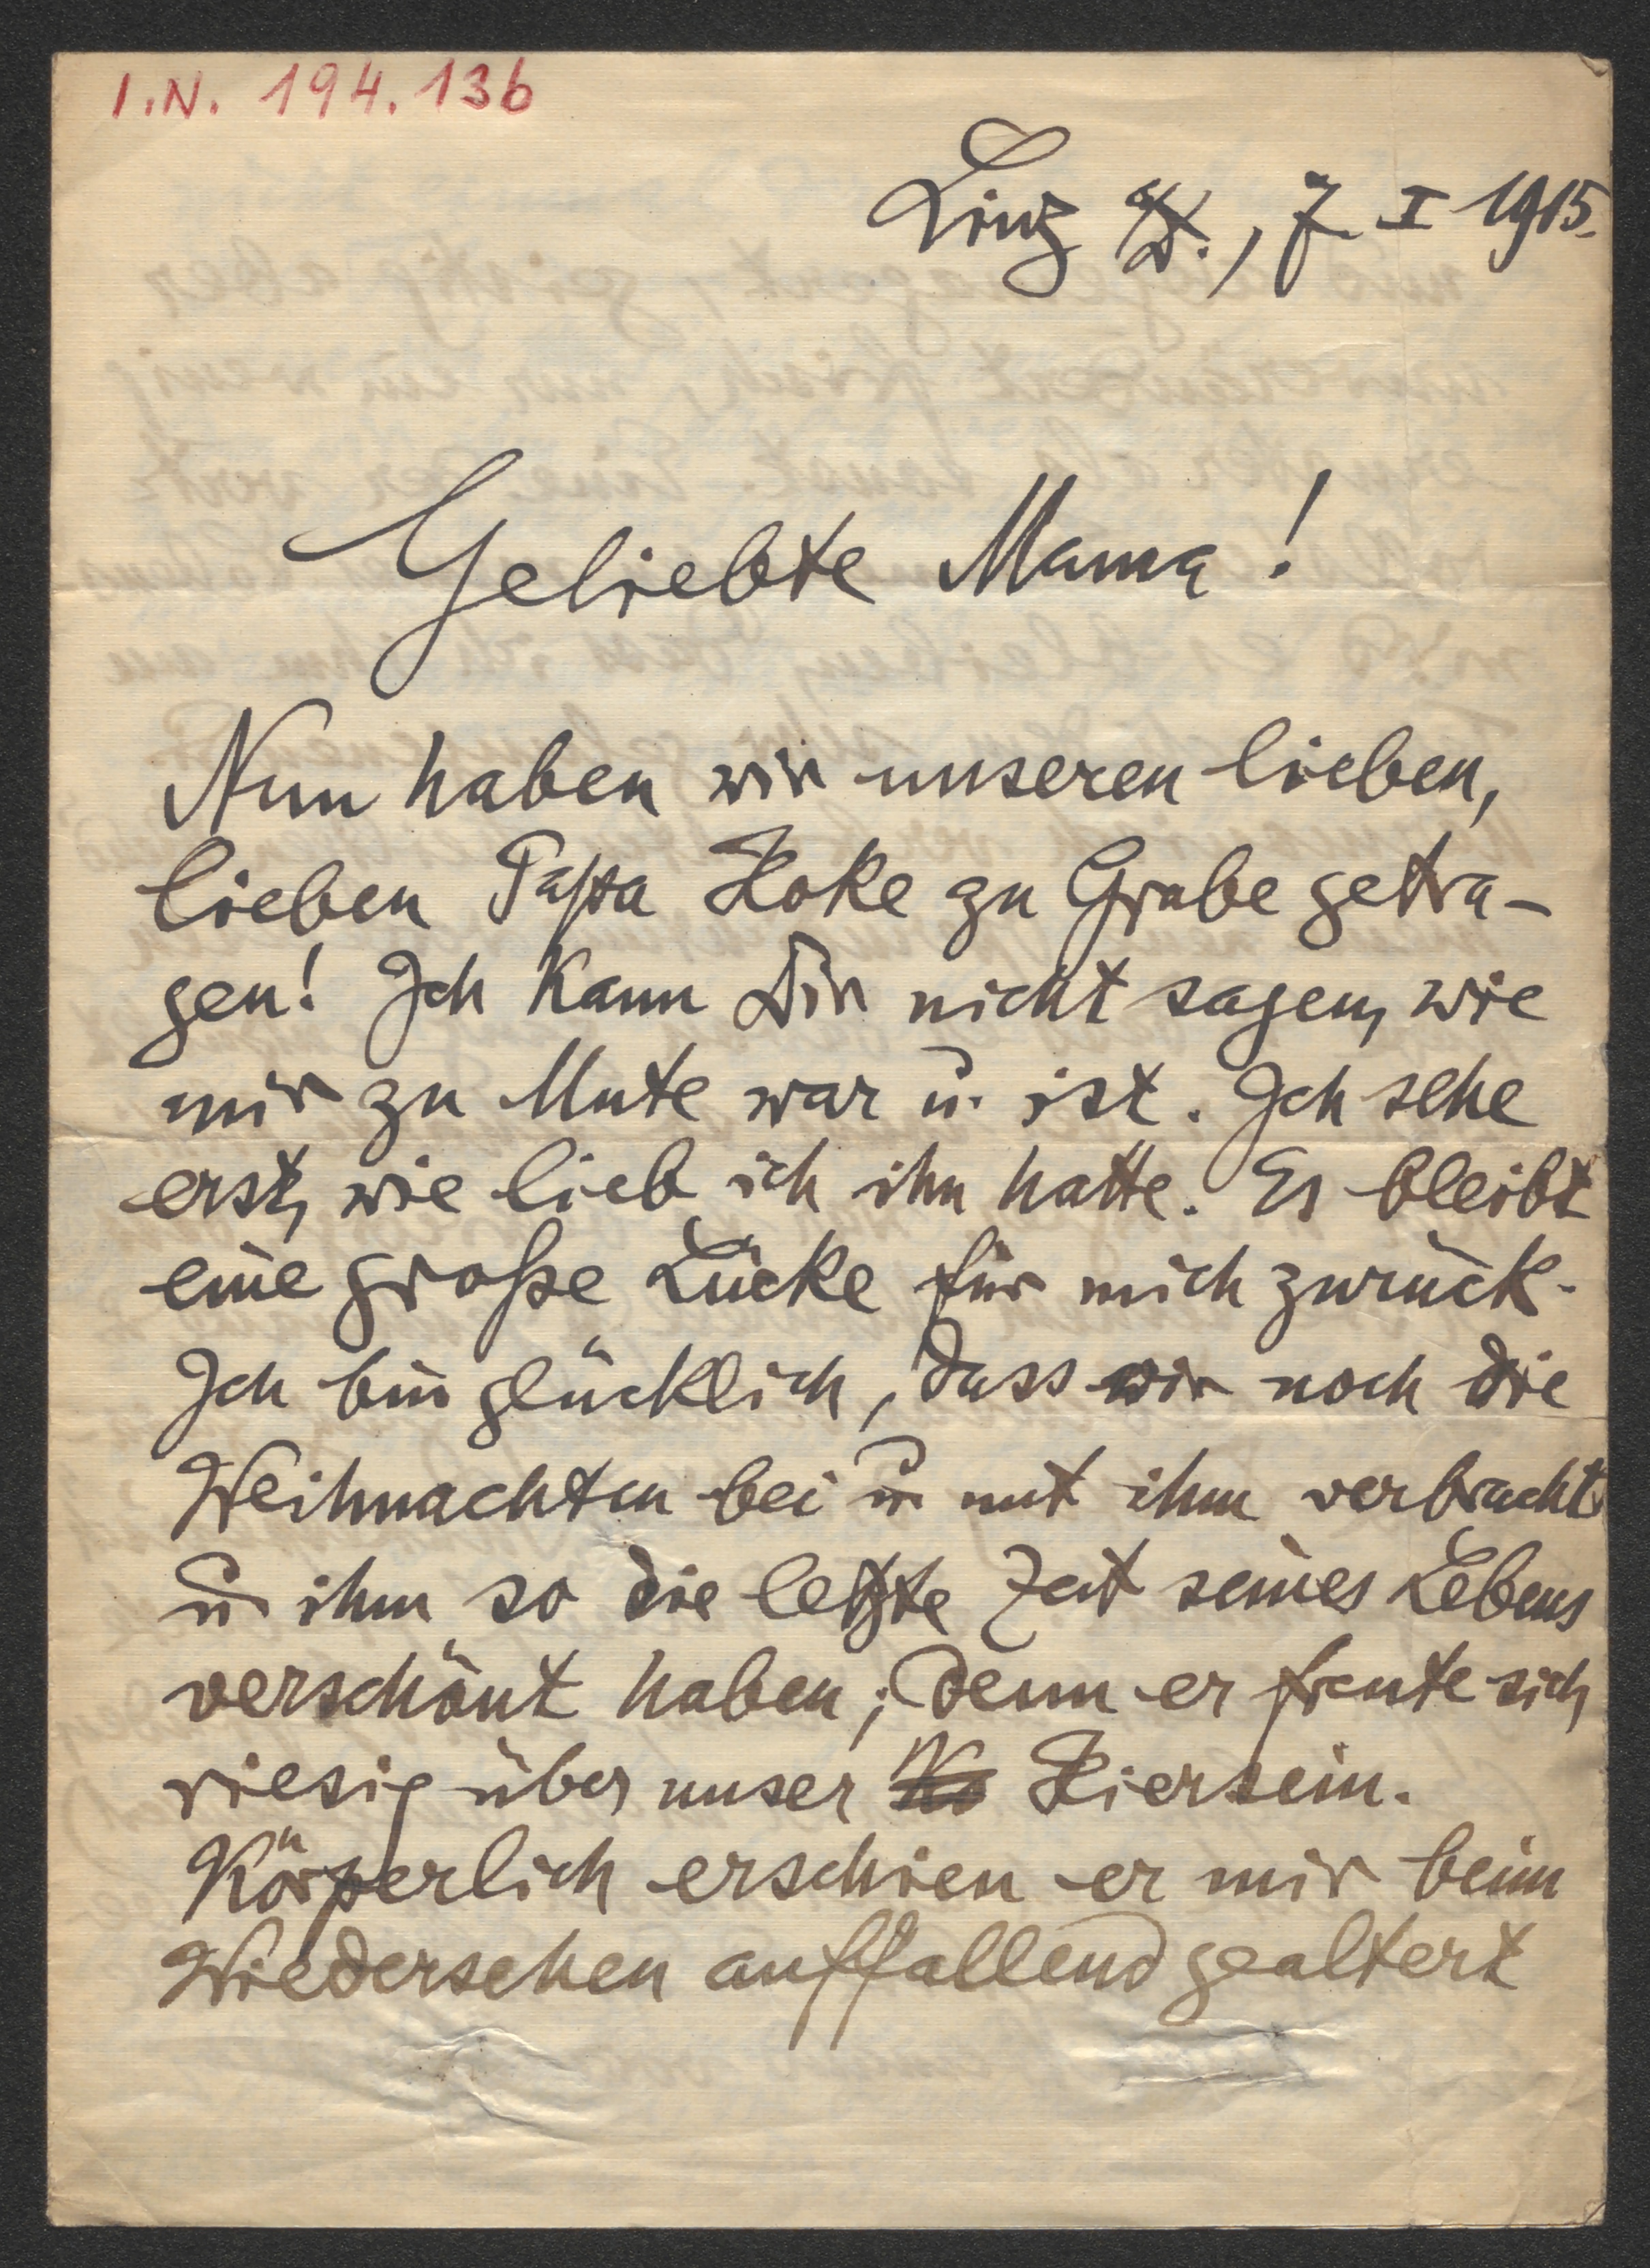 I.N. 194.136
Linz a/D., 7. I 1915.
Geliebte Mama!
Nun haben wir unseren lieben,
lieben Papa Hoke zu Grabe getra-
gen! Ich kann Dir nicht sagen, wie
mir zu Mute war u. ist. Ich sehe
erst, wie lieb ich ihn hatte. Es bleibt
eine große Lücke für mich zurück.
Ich bin glücklich, dass wir noch die
Weihnachten bei u. mit ihm verbracht
u. ihm so die letzte Zeit seines Lebens
verschönt haben; denn er freute sich
riesig über unser Hiersein.
Körperlich erschien er mir beim
Wiedersehen auffallend gealtert